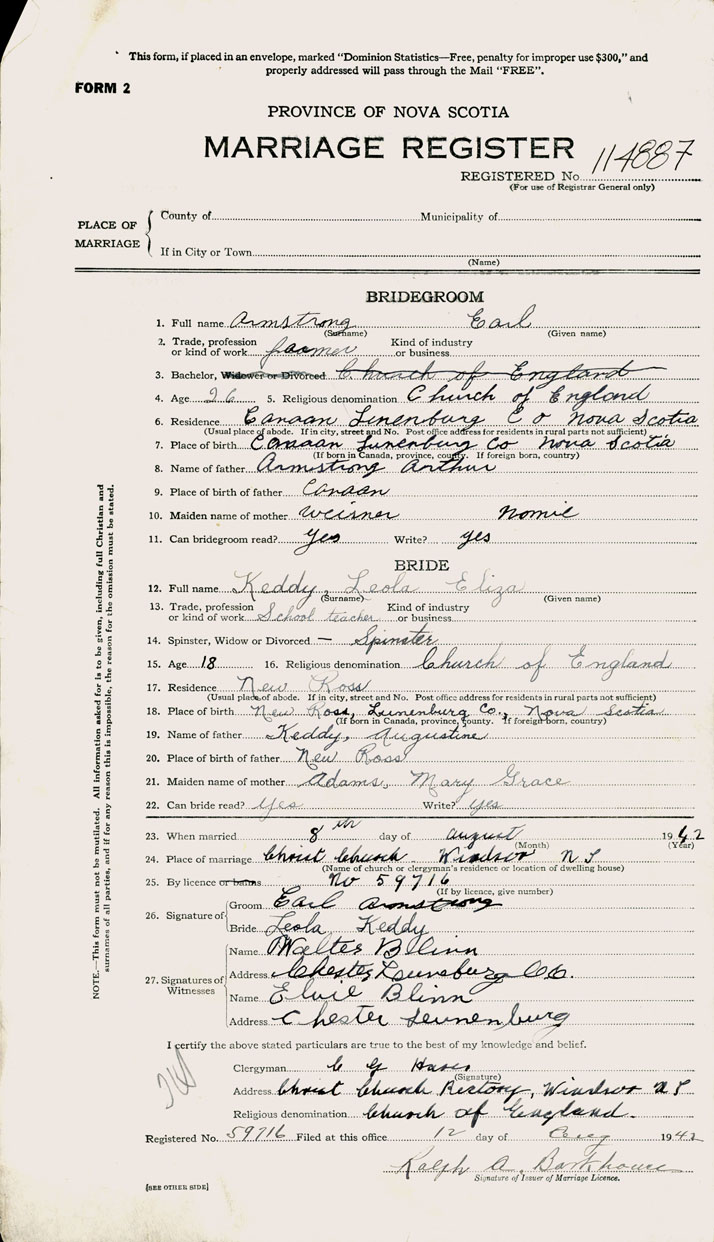 This form, if placed in an envelope, marked "Dominion Statistics—Free, penalty for improper use $300," and
properly addressed will pass through the Mail "FREE".
FORM 2
PROVINCE OF NOVA SCOTIA
MARRIAGE REGISTER
REGISTERED No. 114887
(For use of Registrar General only)
PLACE OF MARRIAGE
County of Municipality of
If in City or Town
(Name)
BRIDEGROOM
1. Full name Armstrong Earl
(Surname) (Given name)
2. Trade, profession or kind of work farmer Kind of industry or business
3. Bachelor, Widower or Divorced Church of England
4. Age 26 5. Religious denomination Church of England
6. Residence Canaan Linenburg C o Nova Scotia
(Usual place of abode. If in city, street and No. Post office address for residents in rural parts not sufficient)
7. Place of birth Canaan Lunenburg Co Nova Scotia
(If born in Canada, province, county. If foreign born, country)
8. Name of father Armstrong Arthur
9. Place of birth of father Canaan
10. Maiden name of mother Weisner Nomie
11. Can bridegroom read? yes Write? yes
BRIDE
12. Full name Keddy, Leola Eliza
(Surname) (Given name)
13. Trade, profession or kind of work School teacher Kind of industry or business
14. Spinster, Widow or Divorced — Spinster
15. Age 18 16. Religious denomination Church of England
17. Residence New Ross
(Usual place of abode. If in city, street and No. Post office address for residents in rural parts not sufficient)
18. Place of birth New Ross, Lunenburg Co., Nova Scotia
(If born in Canada, province, county. If foreign born, country)
19. Name of father Keddy, Augustine
20. Place of birth of father New Ross
21. Maiden name of mother Adams, Mary Grace
22. Can bride read? Yes Write? yes
23. When married 8th day of August 1942
(Month) (Year)
24. Place of marriage Christ Church Windsor N S
(Name of church or clergyman's residence or location of dwelling house)
25. By licence or banns No 59716
(If by licence, give number)
26. Signature of
Groom Earl Armstrong
Bride Leola Keddy
27. Signatures of Witnesses
Name Walter Blinn
Address Chester Lunenburg Co.
Name Elvie Blinn
Address Chester Lunenburg
I certify the above stated particulars are true to the best of my knowledge and belief.
Clergyman C G
(Signature)
Address Christ Church Rectory, Windsor N S
Religious denomination Church of England.
Registered No. 59716 Filed at this office 12 day of Aug 1942
Ralph A. Barkhouse
Signature of Issuer of Marriage Licence.
[SEE OTHER SIDE]
NOTE.—This form must not be mutilated. All information asked for is to be given, including full Christian and
surnames of all parties, and if for any reason this is impossible, the reason for the omission must be stated.